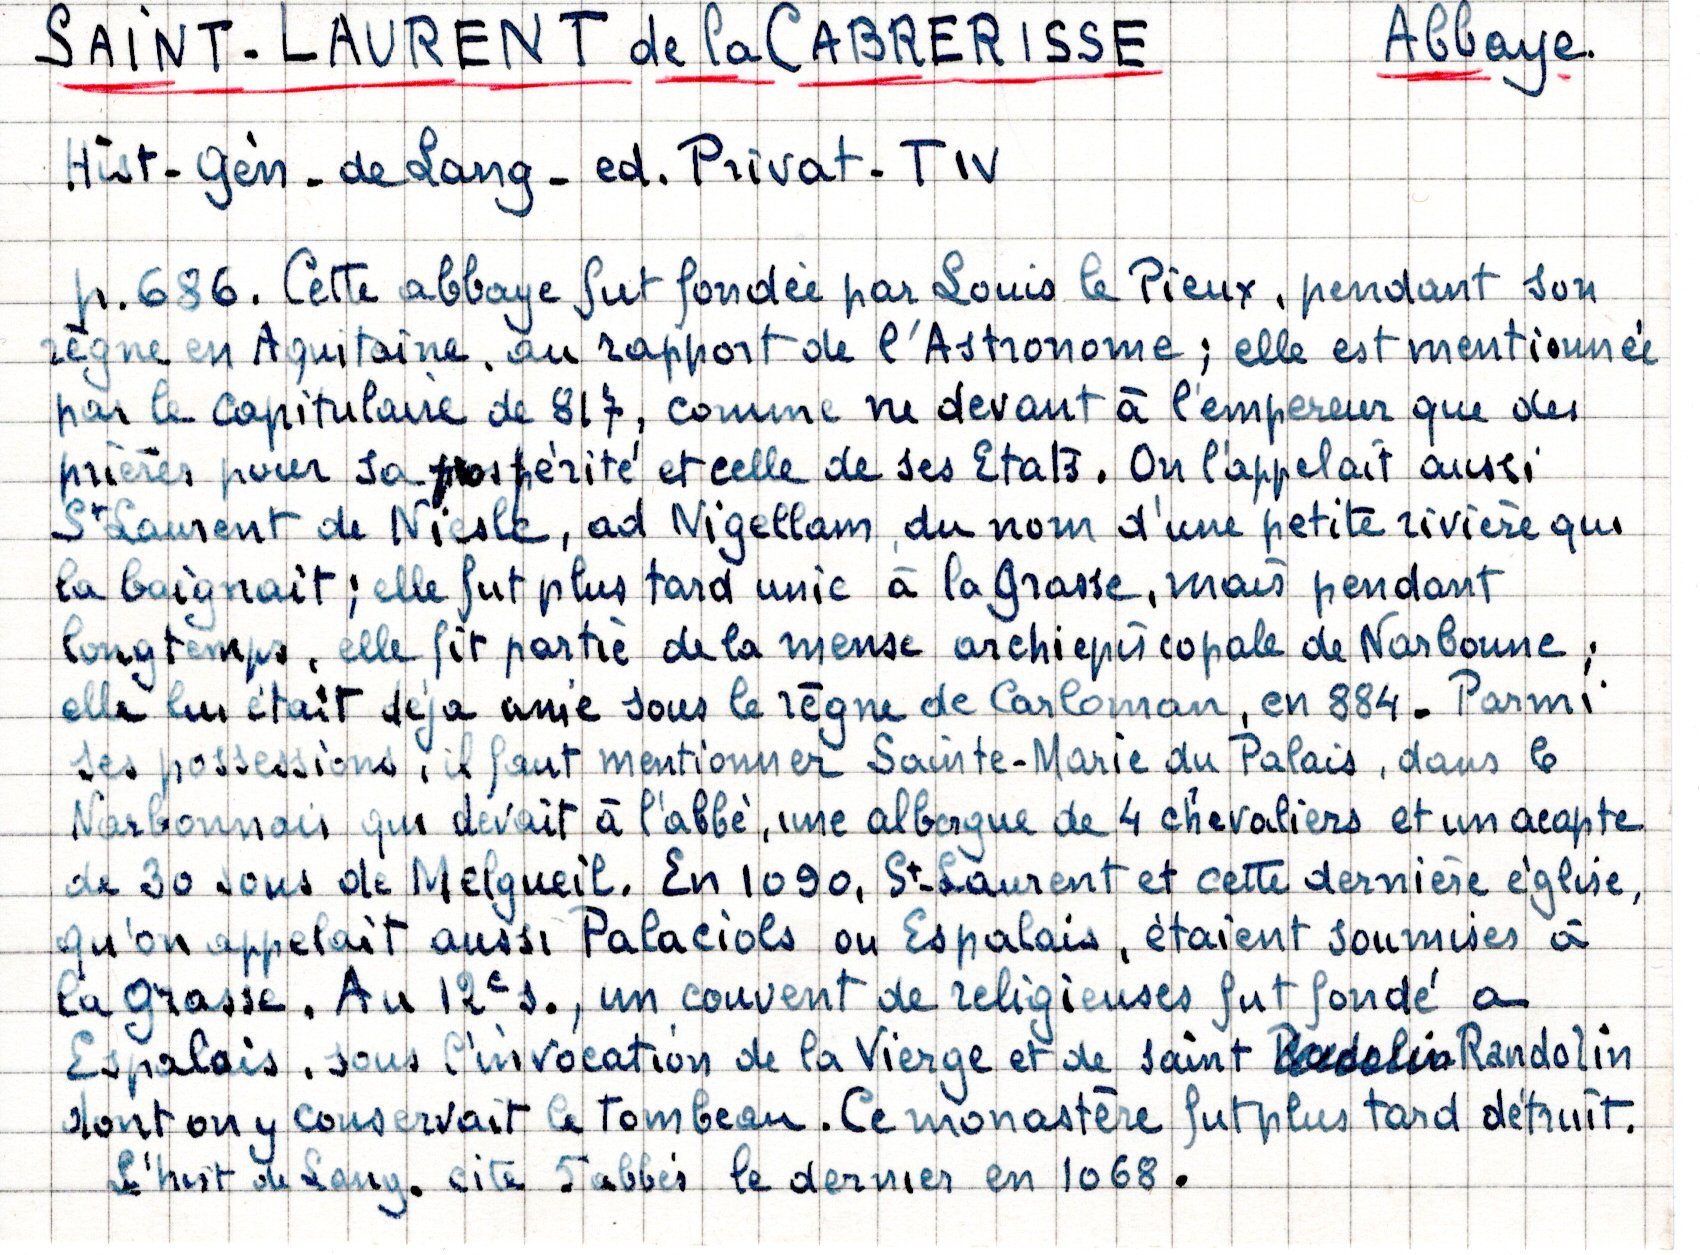 SAINT-LAURENT de la CABRERISSE Abbaye.
Hist-Gén-de Lang-ed. Privat-T IV
p. 686. Cette abbaye fut fondée par Louis le Pieux, pendant son
règne en Aquitaine, au rapport de l'Astronome ; elle est mentionnée
par le capitulaire de 817, comme ne devant à l'empereur que des
prières pour sa prospérité et celle de ses Etats. On l'appelait aussi
St Laurent de Niesle, ad Nigellam, du nom d'une petite rivière qui
la baignait ; elle fut plus tard unie à la Grasse, mais pendant
longtemps, elle fit partie de la mense archiepiscopale de Narbonne ;
elle lui était déjà unie sous le règne de Carloman, en 884. Parmi
ses possessions, il faut mentionner Sainte-Marie du Palais, dans le
Narbonnais qui devait à l'abbé, une albergue de 4 chevaliers et un acapte
de 30 sous de Melgueil. En 1090, St-Laurent et cette dernière église,
qu'on appelait aussi Palaciols ou Espalais, étaient soumises à
la Grasse. Au 12e s., un couvent de religieuses fut fondé a
Espalais, sous l'invocation de la Vierge et de saint Randolin
dont on y conservait le tombeau. Ce monastère fut plus tard détruit.
L'hist de Lang. cite 5 abbés le dernier en 1068.